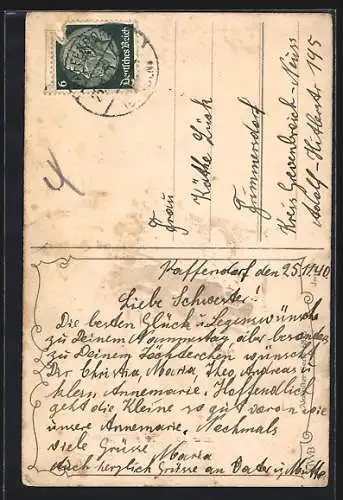 Deutsches Reich
6
Frau
Käthe Lück
Gummersdorf
Kreis Grevenbroich-Neuss
Adolf Hitlerstr 195
Kaffendorf den 25.11.40
Liebe Schwester!
Die besten Glück u. Segenswünsche
zu Deinem Nammestag aber besonders
zu Deinem Töchderchen wünscht
Dir Christia, Maria, Theo, Andreas u
klein Annemarie. Hoffendlich
geht die Kleine so gut voran wie
unsere Annemarie. Nochmals
viele Grüße
Maria
auch herzlich Grüße an Vater u. Mutter